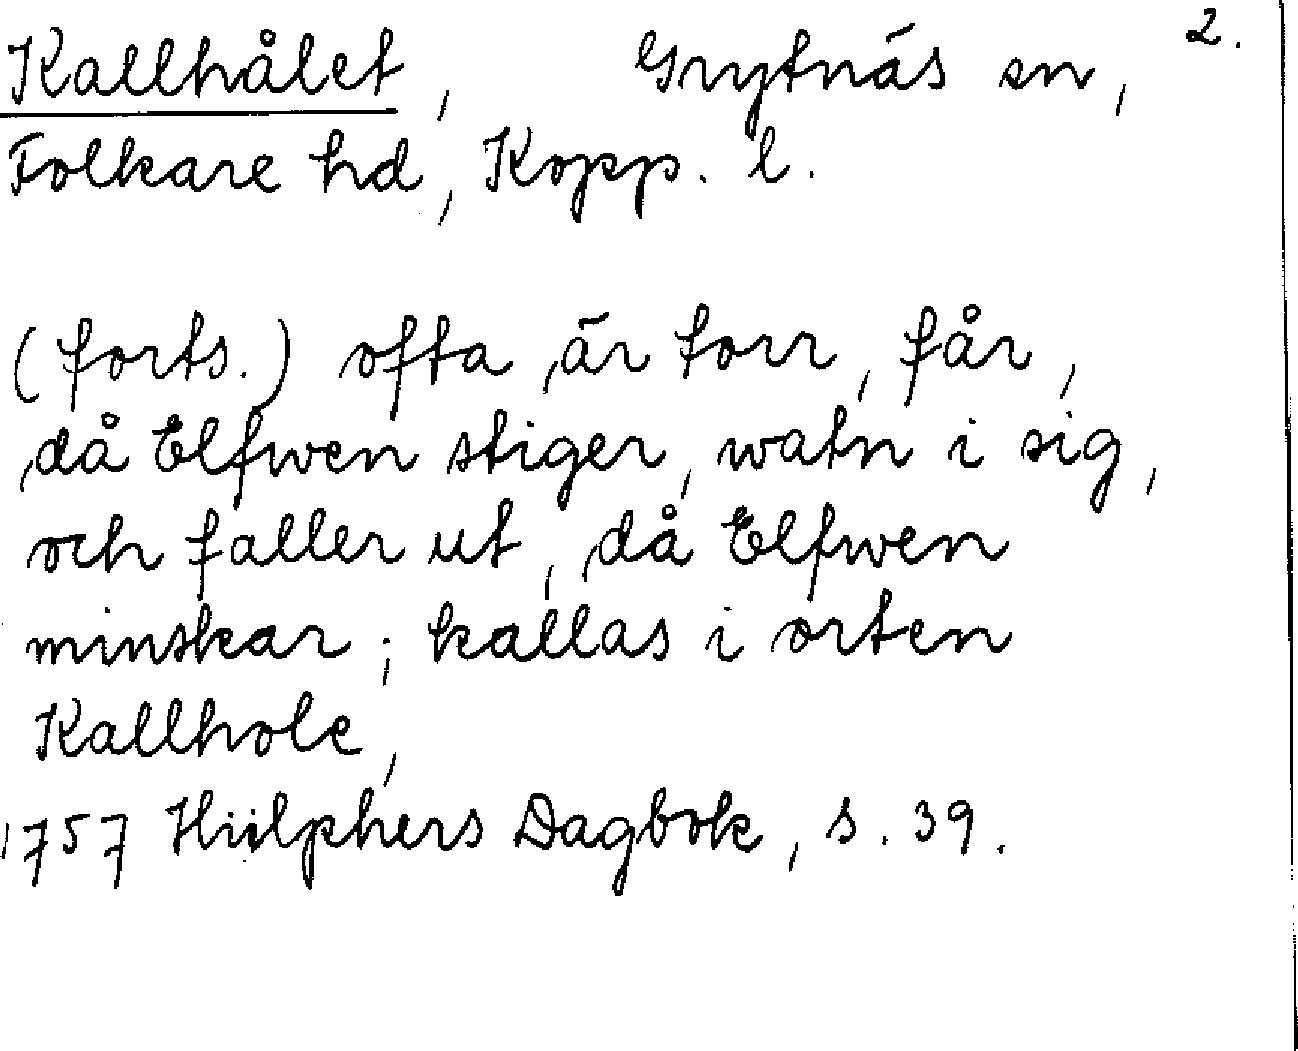 Kallhålet, Grytnäs sn, 2.
Folkare hd, Kopp. l.
(forts.) ofta är torr, får,
då Elfwen stiger, watn i sig,
och faller ut, då Elfwen
minskar; kallas i orten
Kallhole,
1757 Hülphers Dagbok, s. 39.